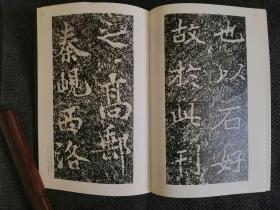 也以石好
故於此刊
之高郵
秦峴西洛